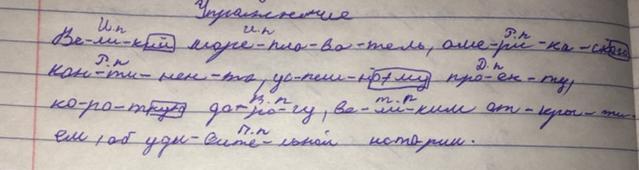 Упражнение
И.п И.п Р.п
Ве-ли-кий море-пла-ва-тель, аме-ри-ка-ского
Р.п Д.п
кон-ти-нен-та, ус-пеш-ному про-ек-ту,
В.п Т.п
ко-ро-ткую до-ро-гу, ве-ли-ким от-кры-ти-
П.п
ем, об уди-вите-льной истории.